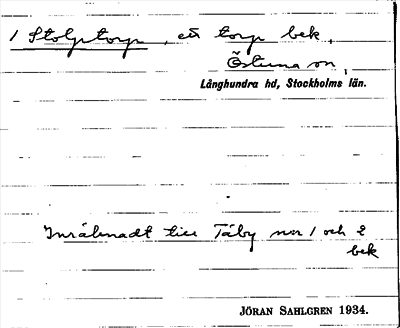 1 Stolptorp, ett torp bek.
Östuna sn,
Långhundra hd, Stockholms län.
Inräknadt till Täby nor 1 och 2
bek
JÖRAN SAHLGREN 1934.